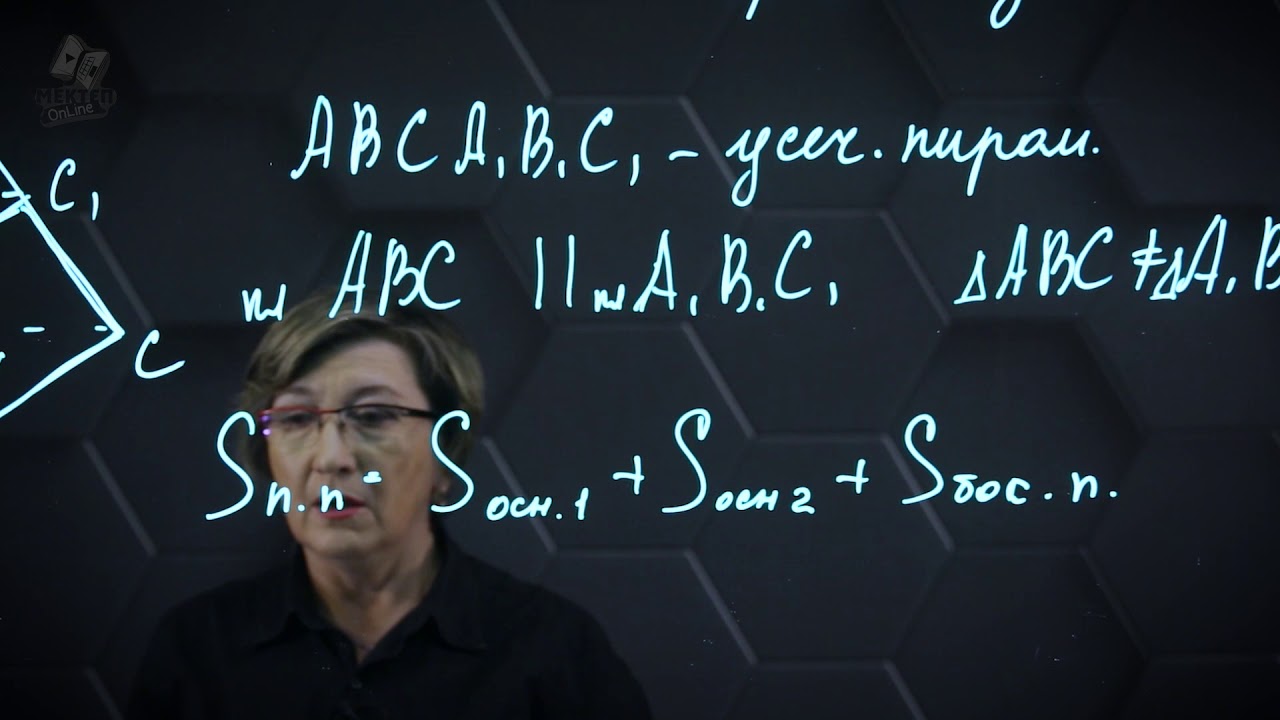 МЕКТЕП
OnLine
ABCA₁B₁C₁ - усеч. пирам.
C₁
пл ABC || пл A₁B₁C₁ △ABC ≠ △A₁B
C
Sп.п = Sосн.1 + Sосн2 + Sбос.п.